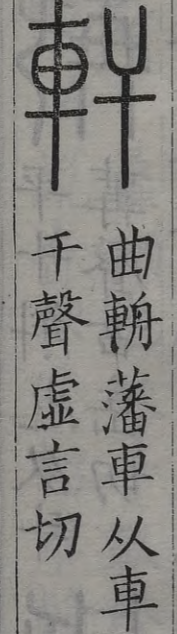 軒
曲輈藩車从車
干聲虛言切